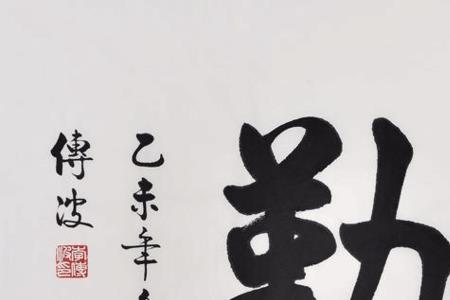 勤
乙未年
傳波